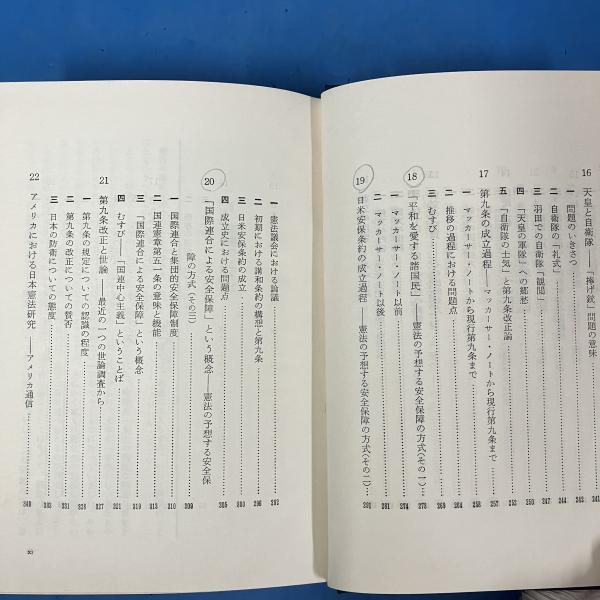 16 天皇と自衛隊――「捧げ銃」問題の意味 241
一 問題のいきさつ 242
二 自衛隊の「礼式」 244
三 羽田での自衛隊「観閲」 247
四 「天皇の軍隊」への郷愁 250
五 「自衛隊の士気」と第九条改正論 252
17 第九条の成立過程――マッカーサー・ノートから現行第九条まで 257
一 マッカーサー・ノートから現行第九条まで 258
二 推移の過程における問題点 264
三 むすび 269
18 「平和を愛する諸国民」――憲法の予想する安全保障の方式(その一) 273
一 マッカーサー・ノート以前 274
二 マッカーサー・ノート以後 281
19 日米安保条約の成立過程――憲法の予想する安全保障の方式(その二) 291
一 憲法議会における論議 292
二 初期における講和条約の構想と第九条 296
三 日米安保条約の成立 300
四 成立史における問題点 305
20 「国際連合による安全保障」という概念――憲法の予想する安全保
障の方式(その三) 309
一 国際連合と集団的安全保障制度 310
二 国連憲章第五一条の意味と機能 313
三 「国際連合による安全保障」という概念 319
四 むすび――「国連中心主義」ということば 321
21 第九条改正と世論――最近の一つの世論調査から 327
一 第九条の規定についての認識の程度 328
二 第九条の改正についての賛否 331
三 日本の防衛についての態度 343
22 アメリカにおける日本憲法研究――アメリカ通信 349